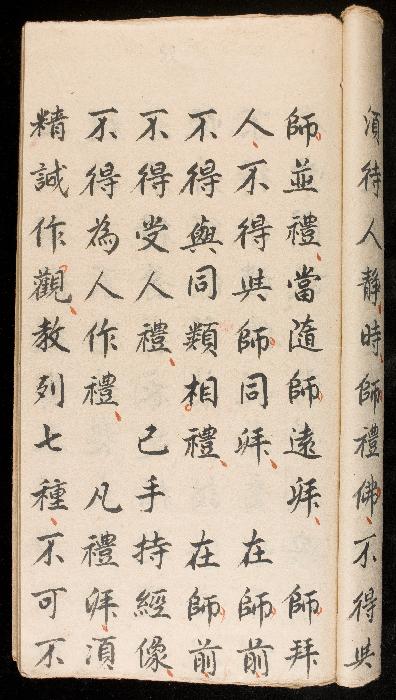 須待人靜時師禮佛不得與
師並禮當隨師遠拜 師拜
人不得與師同拜 在師前
不得與同類相禮 在師前
不得受人禮 己手持經像
不得為人作禮 凡禮拜須
精誠作觀教列七種不可不